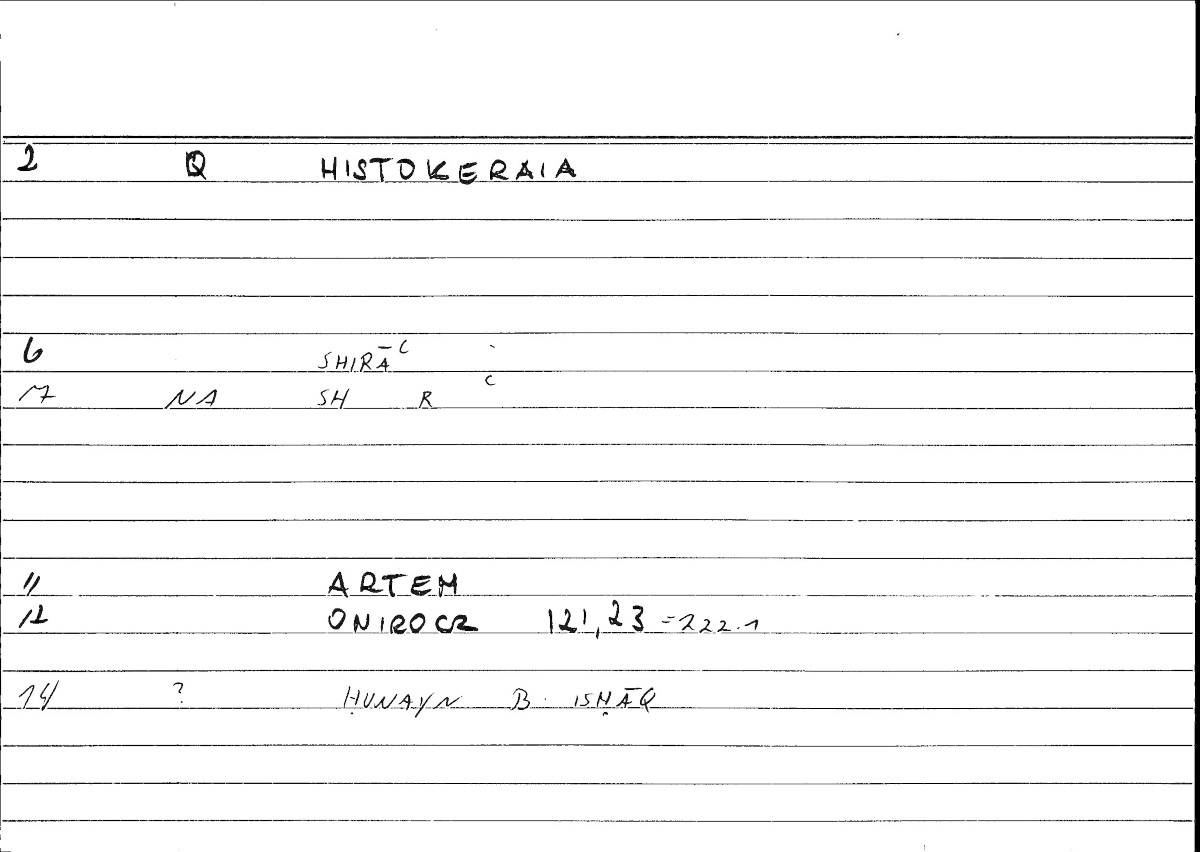 2 Q HISTOKERAIA
6 SHIRĀʿ
7 NA SH R ʿ
11 ARTEM
12 ONIROCR 121,23 =222.1
14 ? ḤUNAYN B. ISḤĀQ